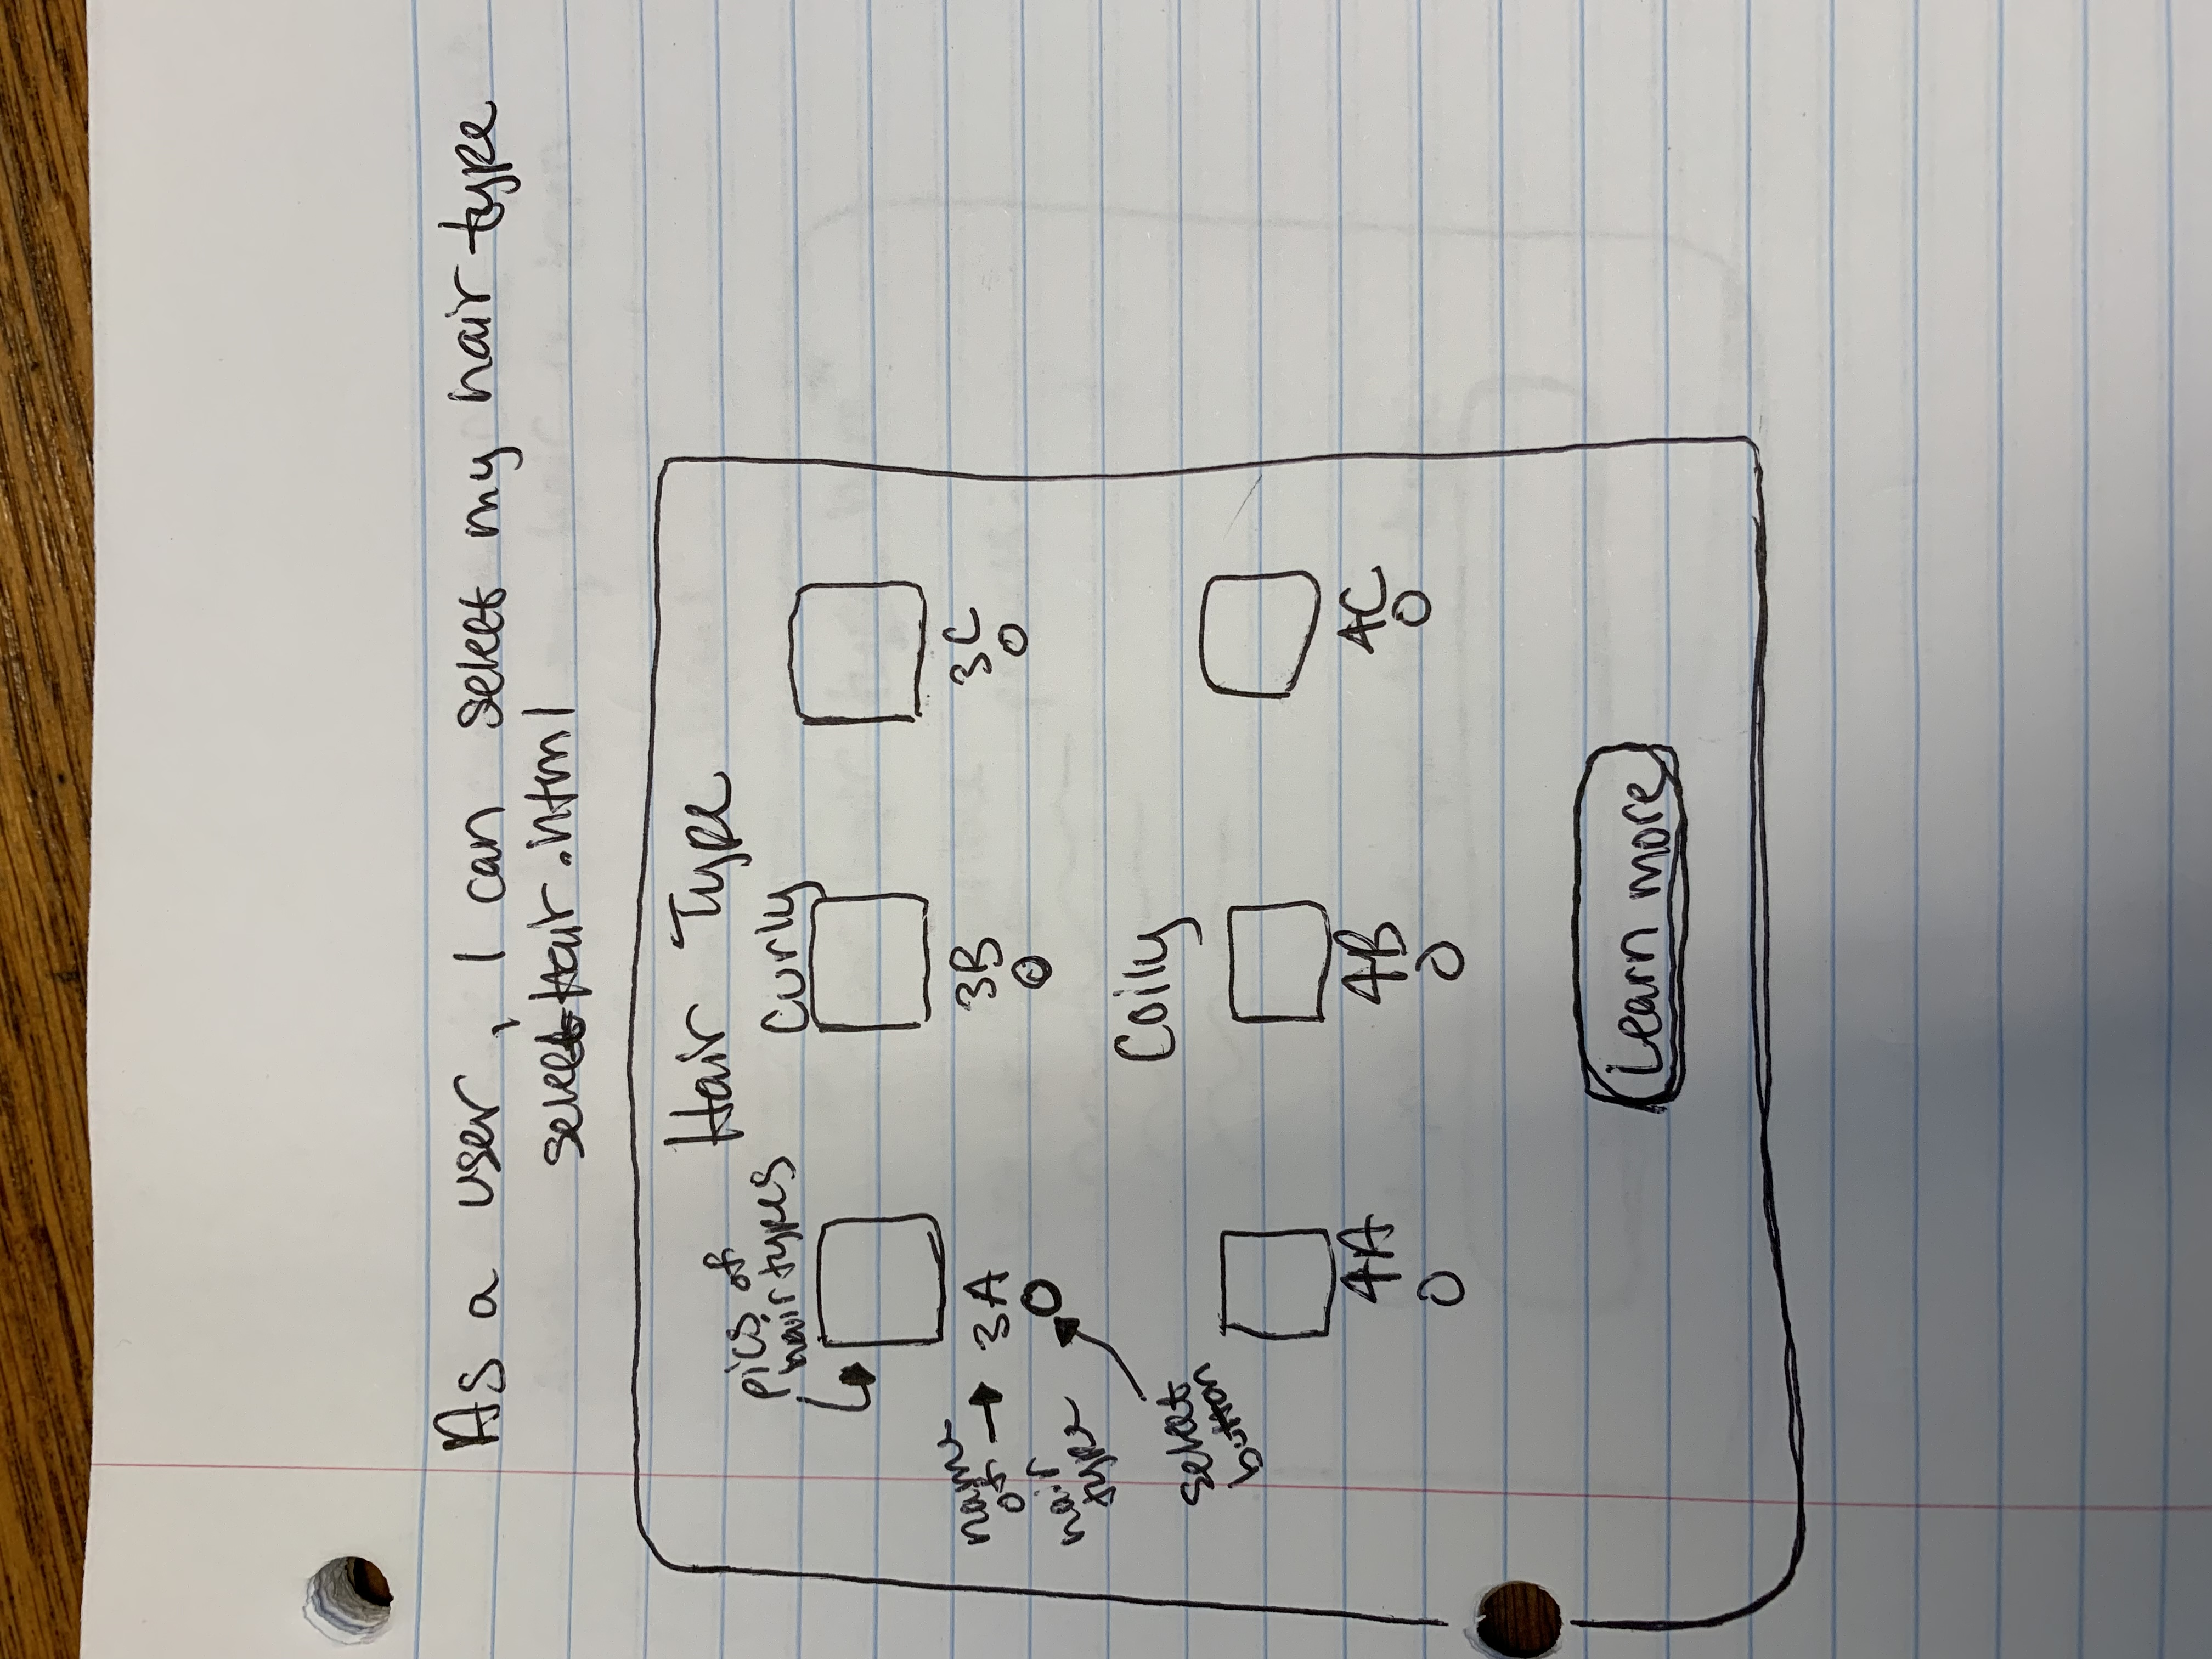 As a user, I can select my hair type
selectHair.html
Hair Type
pics of
hair types
Curly
name
of
hair
type
3A
3B
3C
select
button
Coily
4A
4B
4C
Learn more